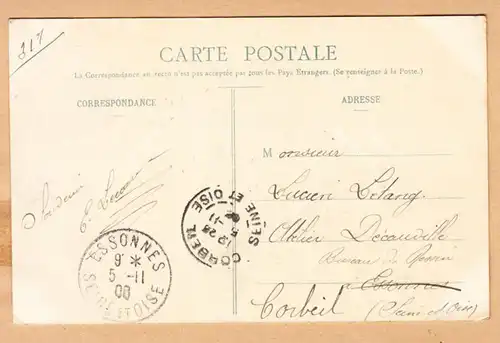 317
CARTE POSTALE
La Correspondance au recto n'est pas acceptée par tous les Pays Etrangers. (Se renseigner à la Poste.)
CORRESPONDANCE
ADRESSE
Monsieur
Lucien Letang
Atelier Décauville
Bureau du
à Essonnes
Corbeil (Seine et Oise)
Souvenir
E.
CORBEIL
5 -11
SEINE ET OISE
ESSONNES
9 *
5 -11
S. ET OISE